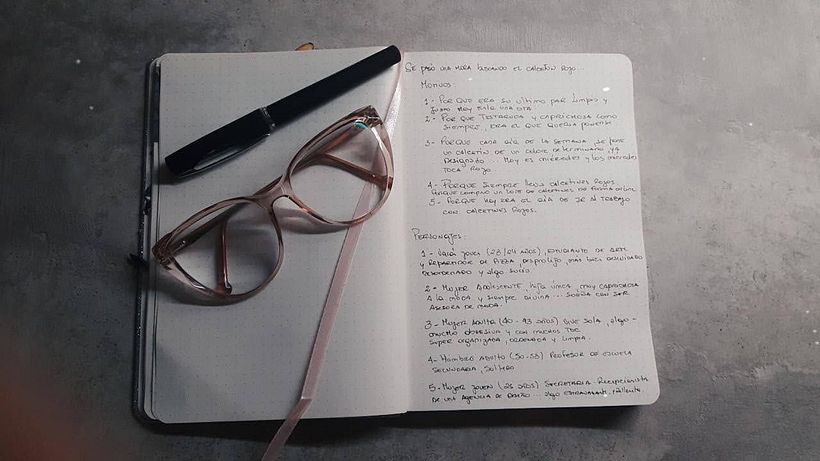 Se pasó una hora buscando el calcetín rojo...
Motivos:
1- Porque era su último par limpio y
justo hoy tenía una cita.
2- Por que testaruda y caprichosa como
siempre, era el que quería ponerse
3- Porque cada día de la semana se pone
un calcetín de un color determinado, ya
designado... Hoy es miércoles y los miércoles
toca rojo.
4- Porque siempre lleva calcetines rojos.
compró un lote de calcetines de forma online
5- Porque hoy era el día de ir al trabajo
con calcetines rojos.
Personajes:
1- joven (23/24 años), estudiante de arte
y repartidor de pizza, desprolijo, más bien descuidado
desordenado y algo sucio.
2- Mujer adolescente, hija única, muy caprichosa
a la moda y siempre divina... sueña con ser
asesora de moda.
3- Mujer adulta (40-43 años) que sola, algo-
mucho obsesiva y con muchos TOC
super organizada, ordenada y limpia.
4- Hombre adulto (50-53) profesor de escuela
secundaria, soltero
5- Mujer joven (25 años) secretaria-recepcionista
de una agencia de diseño... algo extravagante,